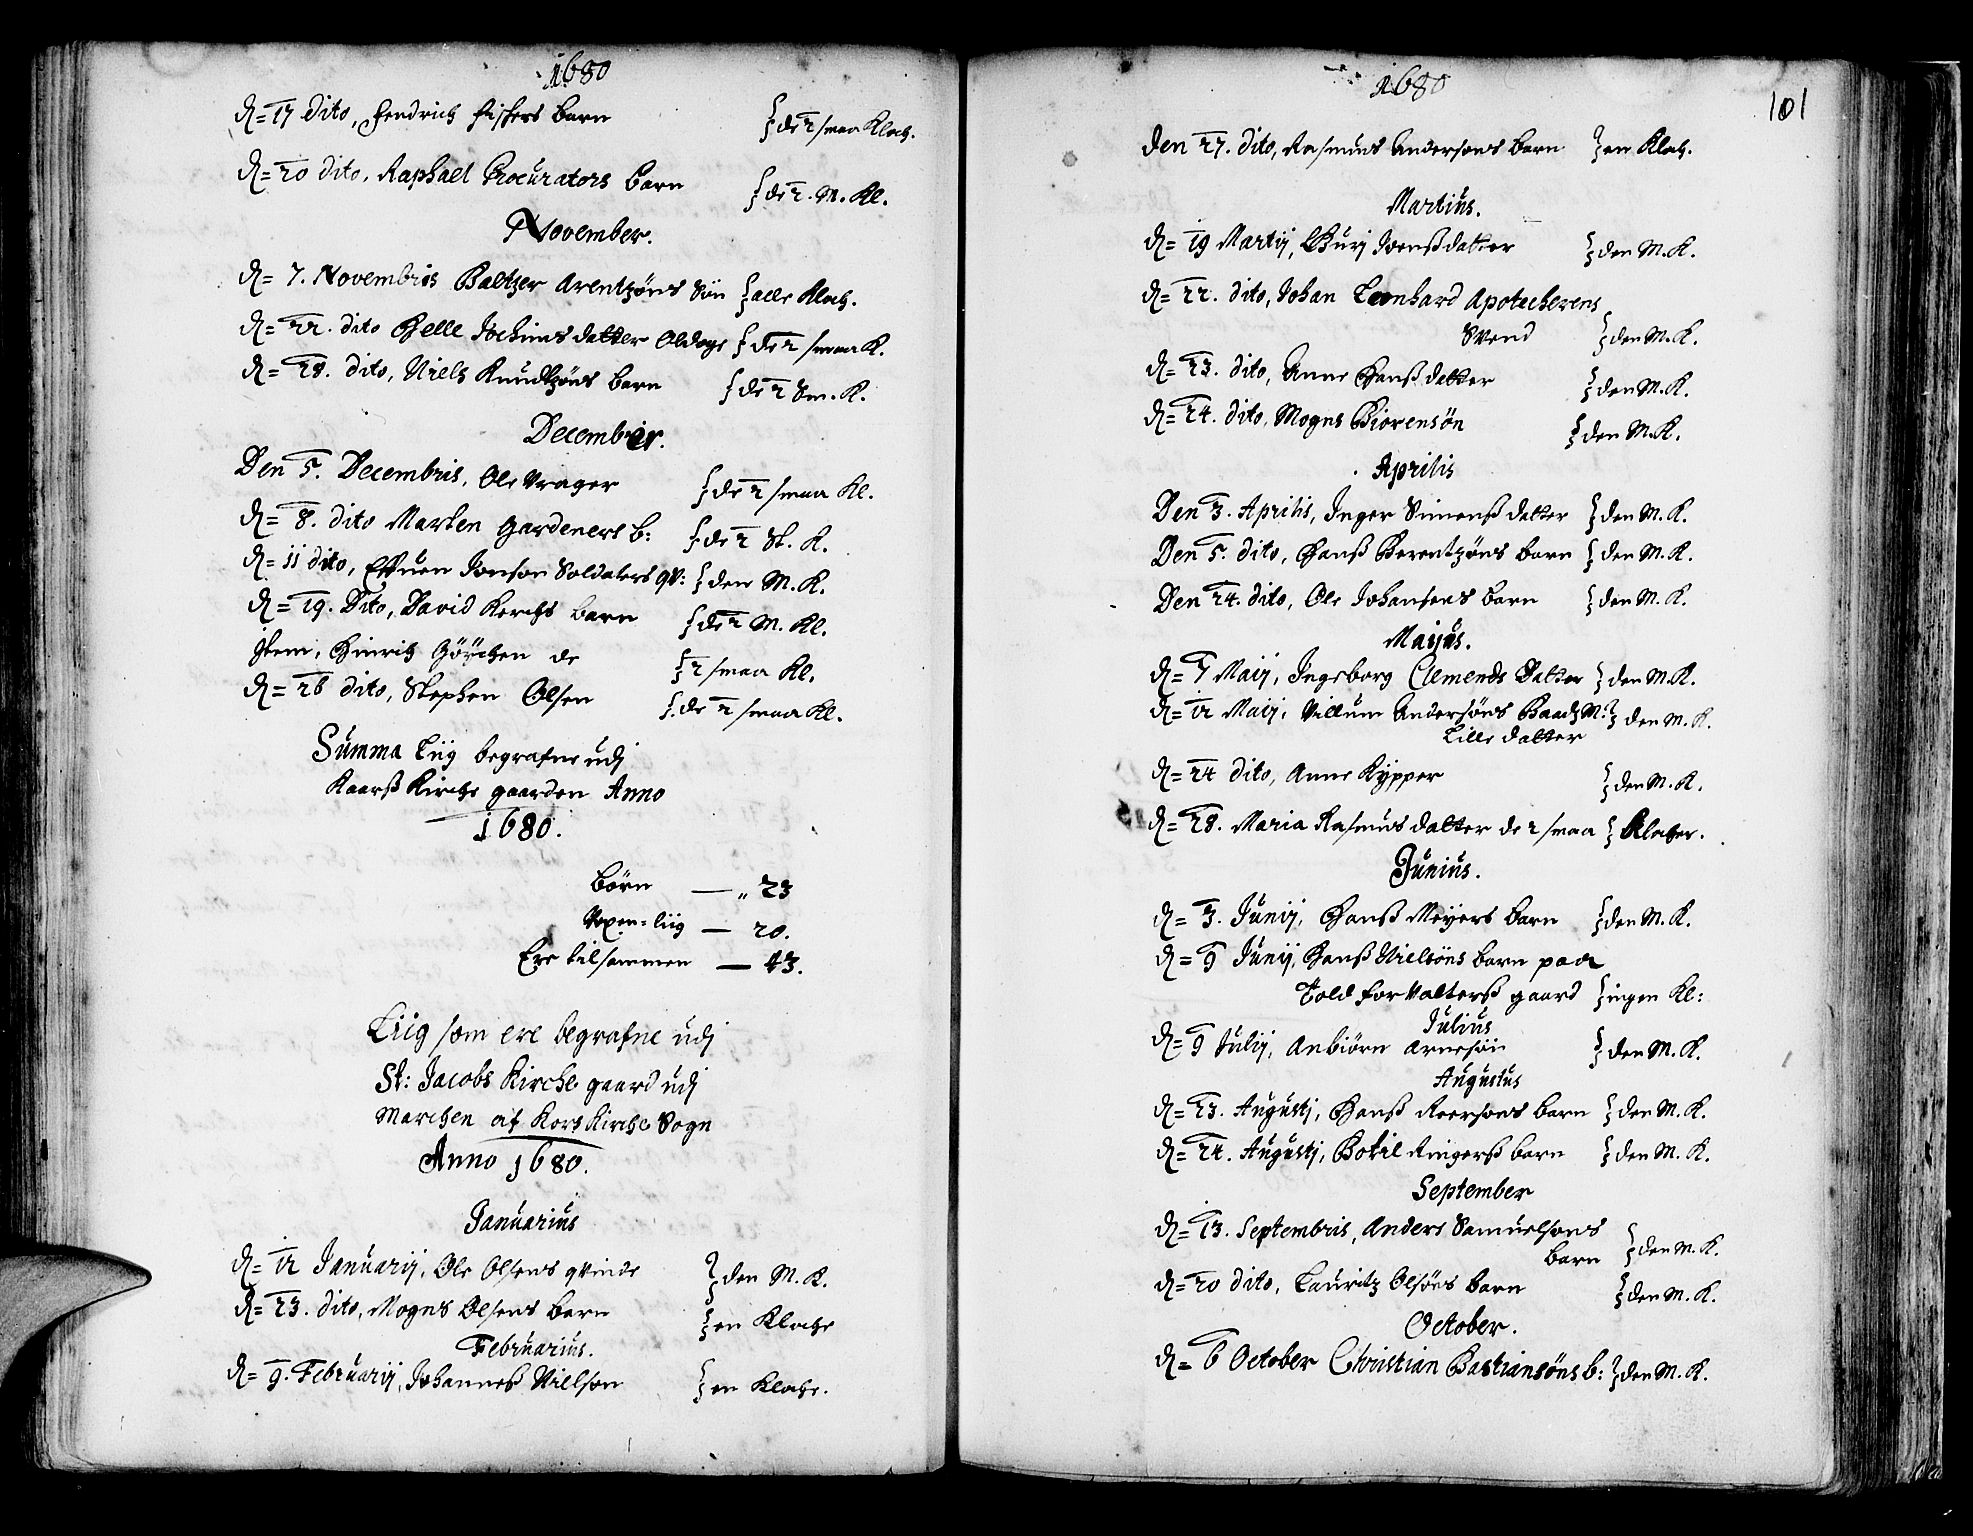 1680
D= 17 Dito, Hendrich Fischers barn } de 2 smaa Kloch.
D= 20 dito, Raphael Procurators barn } de 2. M. Kl.
November.
D= 7. Novembris Baltzer Arentzøns Søn } alle Kloch.
D= 22. dito Helle Jochims datter Oldoge } de 2 smaa K.
D= 28. dito, Niels Knudtzøns barn } de 2 Sm. K.
December.
Den 5. Decembris, Ole Vrager } de 2 smaa Kl.
D= 8. dito Marten Gardeners b: } de 2 St. K.
D= 11 dito, Effuen Jonson Soldaters qv: } den M. K.
D= 19. Dito, David Kerchs barn } de 2 M. Kl.
Item, Hinrich de } 2 smaa Kl.
D= 26 dito, Stephen Olsen } de 2 smaa Kl.
Summa Liig begrafne udj
Kaarß Kirche gaarden Anno
1680.
Børn — „ 23
Voxen-liig — 20.
Ere tilsammen — 43.
Liig som ere begrafne udj
St: Jacobs Kirche gaard udj
Marchen af Kors Kirche Sogn
Anno 1680.
Januarius
D= 12 Januarij, Ole Olsens qvinde } den M. K.
D= 23. dito, Mogns Olsens barn } en Kloche
Februarius.
D= 9. Februarij, Johannes Nillson } en Kloche.
1680
101
Den 27. dito, Rasmus Andersøns barn } en Kloch.
Martius.
D= 19 Martij, Guri Joenßdatter } den M. K.
D= 22. dito, Johan Leonhard Apotecherens
Svend } den M. K.
D= 23. dito, Anne Hanßdatter } den M. K.
D= 24. dito, Mogns Biørensøn } den M. K.
Aprilis
Den 3. Aprilis, Inger Simenß datter } den M. K.
Den 5. dito, Hanß Berentzøns barn } den M. K.
Den 24. dito, Ole Johansens barn } den M. K.
Maijus.
D= 7 Maij, Ingeborg Clemends Datter } den M. K.
D= 12 Maij, Villum Andersøns Baadz M: } den M. K.
Lille datter
D= 24 dito, Anne Kypper } den M. K.
D= 28. Maria Rasmus datter de 2 smaa } Klocher.
Junius.
D= 3. Junij, Hanß Meyers barn } den M. K.
D= 9 Junij, Hanß Nielsøns barn paa
Told forvalterß gaard } ingen Kl:
Julius
D= 9 Julij, Anbiørn Arnesøn } den M. K.
Augustus
D= 23. Augustj, Hanß Reersøns barn } den M. K.
D= 24. Augustj, Botil Ringerß barn } den M. K.
September
D= 13. Septembris, Anders Samuelsøns
barn } den M. K.
D= 20 dito, Lauritz Olsøns barn } den M. K.
October.
D= 6 October Christian Bastiansøns b: } den M. K.